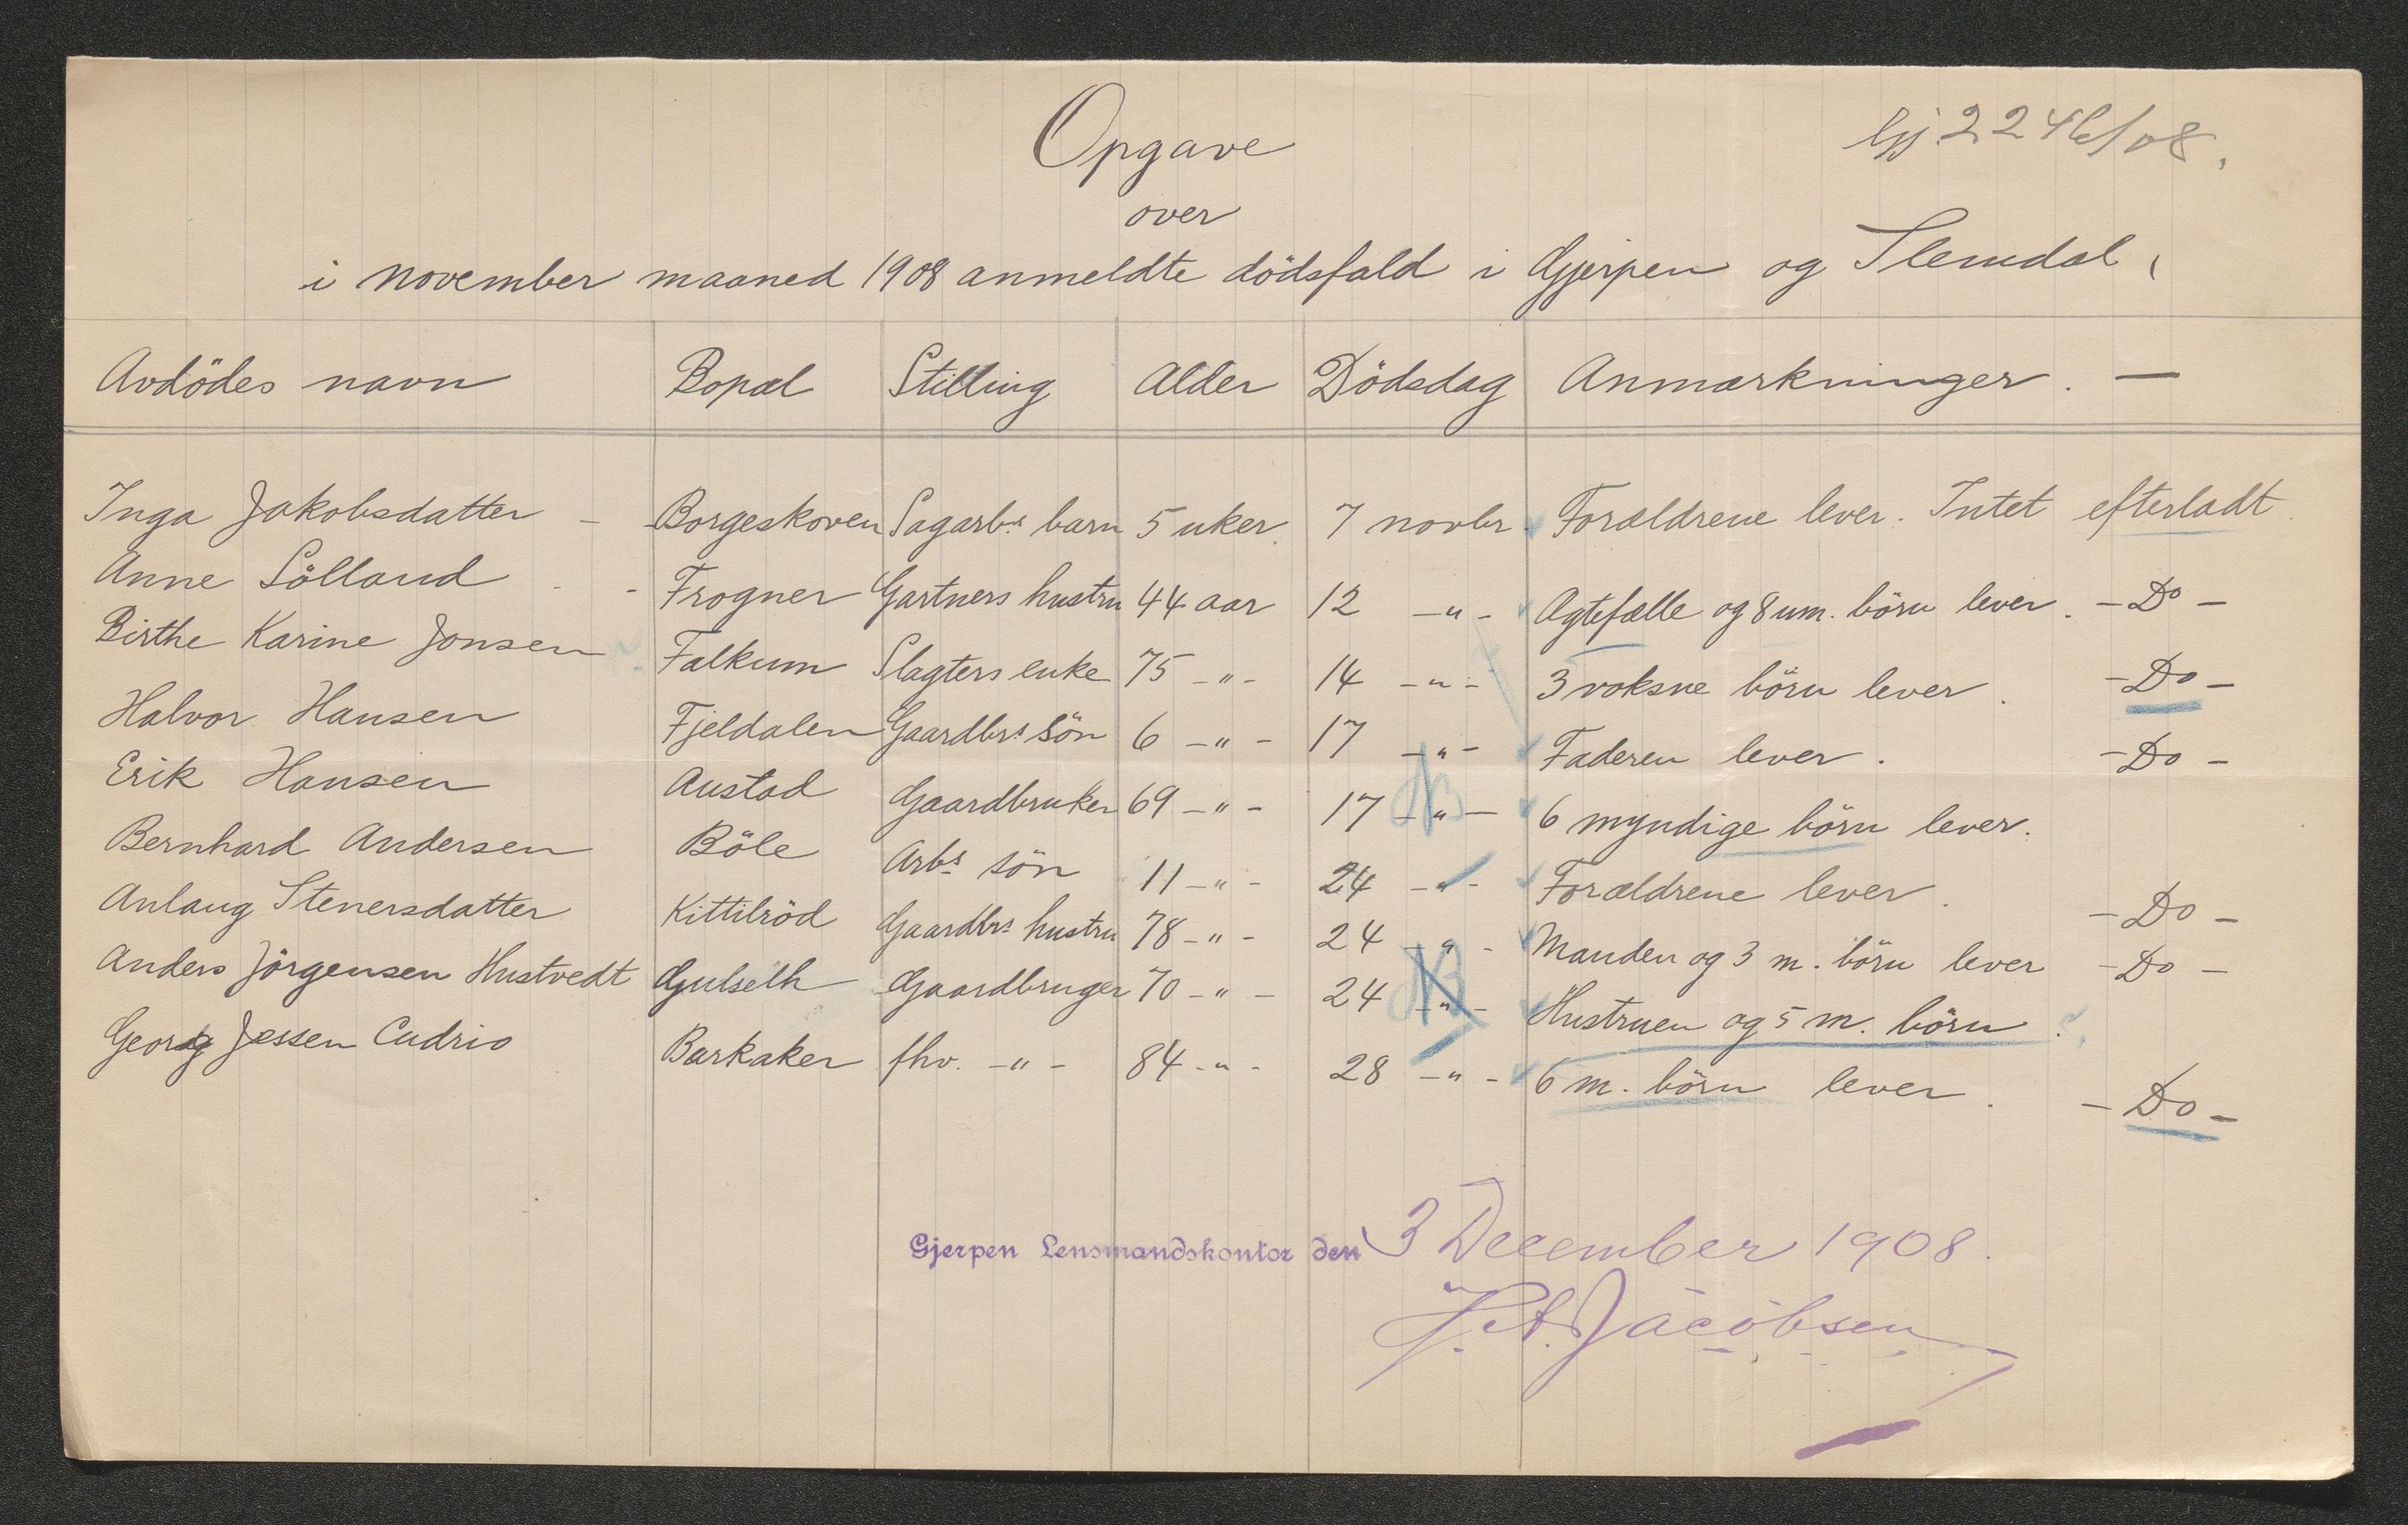 Opgave
Gj. 2246/08.
over
i november maaned 1908 anmeldte dödsfald i Gjerpen og Slemdal,
Avdödes navn Bopæl Stilling Alder Dödsdag Anmærkninger. —
Inga Jakobsdatter - Borgeskoven Sagarbs. barn 5 uker. 7 novbr. Forældrene lever. Intet efterladt.
Anne Sölland - Frogner Gartners hustru 44 aar 12 -"- Ægtefælle og 8 um. börn lever. - Do -
Birthe Karine Jonsen Falkum Slagters enke 75 -"- 14 -"- 3 voksne börn lever. - Do -
Halvor Hansen Fjeldalen Gaardbrs. sön 6 -"- 17 -"- Faderen lever. - Do -
Erik Hansen Austad Gaardbruker 69 -"- 17 -"- NB 6 myndige börn lever.
Bernhard Andersen Böle Arbs. sön 11 -"- 24 -"- Forældrene lever. - Do -
Anlaug Stenersdatter Kittilröd Gaardbrs. hustru 78 -"- 24 -"- Manden og 3 m. börn lever - Do -
Anders Jörgensen Hustvedt Gulseth Gaardbruger 70 -"- 24 -"- NB Hustruen og 5 m. börn.
Georg Jessen Cudrio Barkaker fhv. -"- 84 -"- 28 -"- 6 m. börn lever. - Do -
Gjerpen Lensmandskontor den 3 December 1908.
H. A. Jacobsen